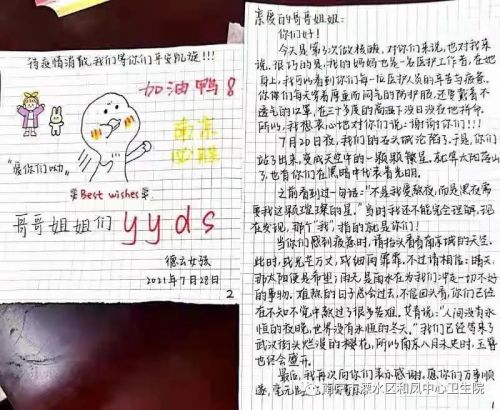 待疫情消散,我们等你们平安凯旋!!!
加油鸭8
南京
必胜
"爱你们呦"
Best wishes
哥哥姐姐们 yyds
德云女孩
2021年7月28日
2
亲爱的哥哥姐姐:
你们好!
今天是第3次做核酸,对你们来说,也对我来
说,很巧的是,我的妈妈也是一名医护工作者,在她
身上,我可以看到你们每一位医护人员的辛苦与疲惫。
你们每天穿着厚重而闷气的防护服,还要戴着不
透气的口罩,在三十多度的高温下没日没夜地拼命,
所以,我想衷心地对你们说:谢谢你们!!!
7月20日夜,我们的石头城沦陷了,于是,你们
站了出来,变成天空中的一颗颗繁星,就算太阳落山
了,也有你们在黑暗中代表着光明。
之前看到过一句话:"不是我要熬夜,而是黑夜需
要我这颗璀璨的星。"当时我还不能完全理解,现
在发现,那个"我"指的就是你们!
当你们感到疲惫时,请抬头看看南京城的天空,
此时,或光芒万丈,或细雨霏霏,不过请相信:晴天,
那太阳便是希望;雨天是雨水在为我们冲走一切不好
的事物。难熬的日子总会过去,不信回头看,你们已经
在不知不觉中熬过了很多苦难。艾青说:"人间没有永
恒的夜晚,世界没有永恒的冬天。"我们已经等来了
武汉街头烂漫的樱花,所以南京八月未央时,玉簪
也终会盛开。
最后,我再次向你们表示感谢,愿你们万事顺
遂,毫无
溧水区和凤中心卫生院